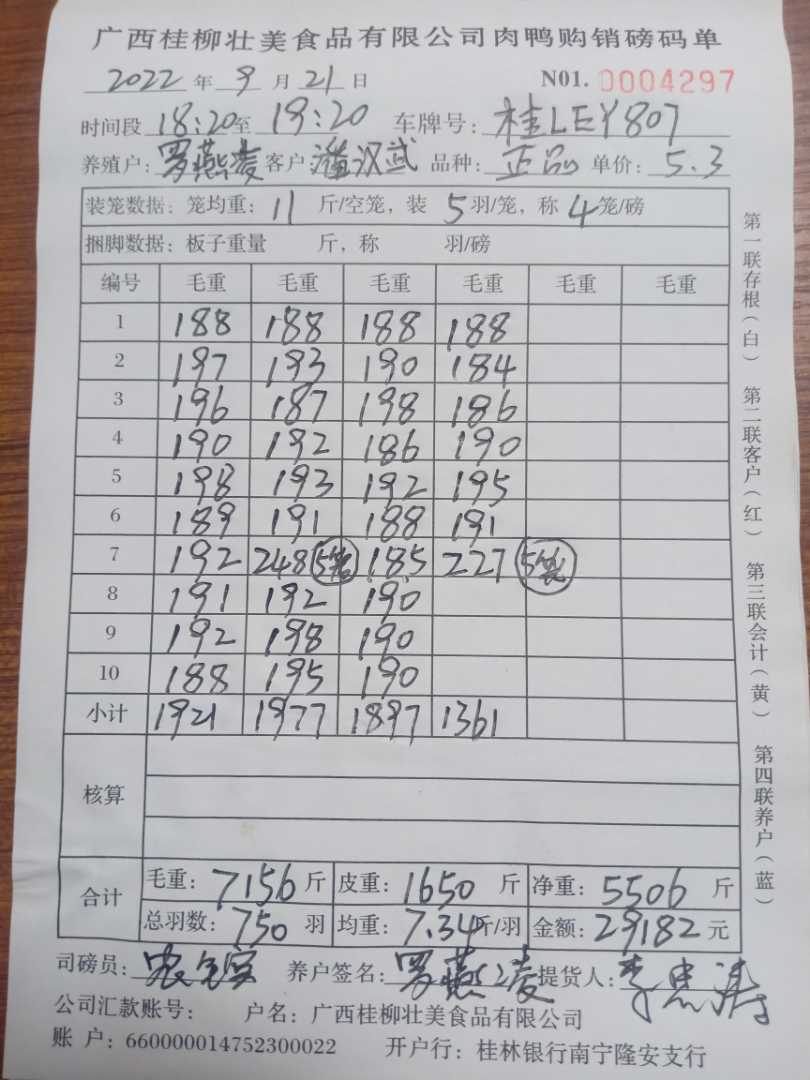 广西桂柳壮美食品有限公司肉鸭购销磅码单
2022 年 9 月 21 日 N01. 0004297
时间段 18:20 至 19:20 车牌号: 桂LEY807
养殖户: 罗燕凌 客户 潘汉武 品种: 正品 单价: 5.3
装笼数据: 笼均重: 11 斤/空笼, 装 5 羽/笼, 称 4 笼/磅
捆脚数据: 板子重量 斤, 称 羽/磅
编号 毛重 毛重 毛重 毛重 毛重 毛重
1 188 188 188 188
2 197 193 190 184
3 196 187 198 186
4 190 192 186 190
5 198 193 192 195
6 189 191 188 191
7 192 248 5笼 185 227 5笼
8 191 192 190
9 192 198 190
10 188 195 190
小计 1921 1977 1897 1361
核算
合计 毛重: 7156 斤 皮重: 1650 斤 净重: 5506 斤
总羽数: 750 羽 均重: 7.34 斤/羽 金额: 29182 元
司磅员: 养户签名: 罗燕凌 提货人: 李忠涛
公司汇款账号: 户名: 广西桂柳壮美食品有限公司
账 户: 660000014752300022 开户行: 桂林银行南宁隆安支行
第一联存根(白) 第二联客户(红) 第三联会计(黄) 第四联养户(蓝)